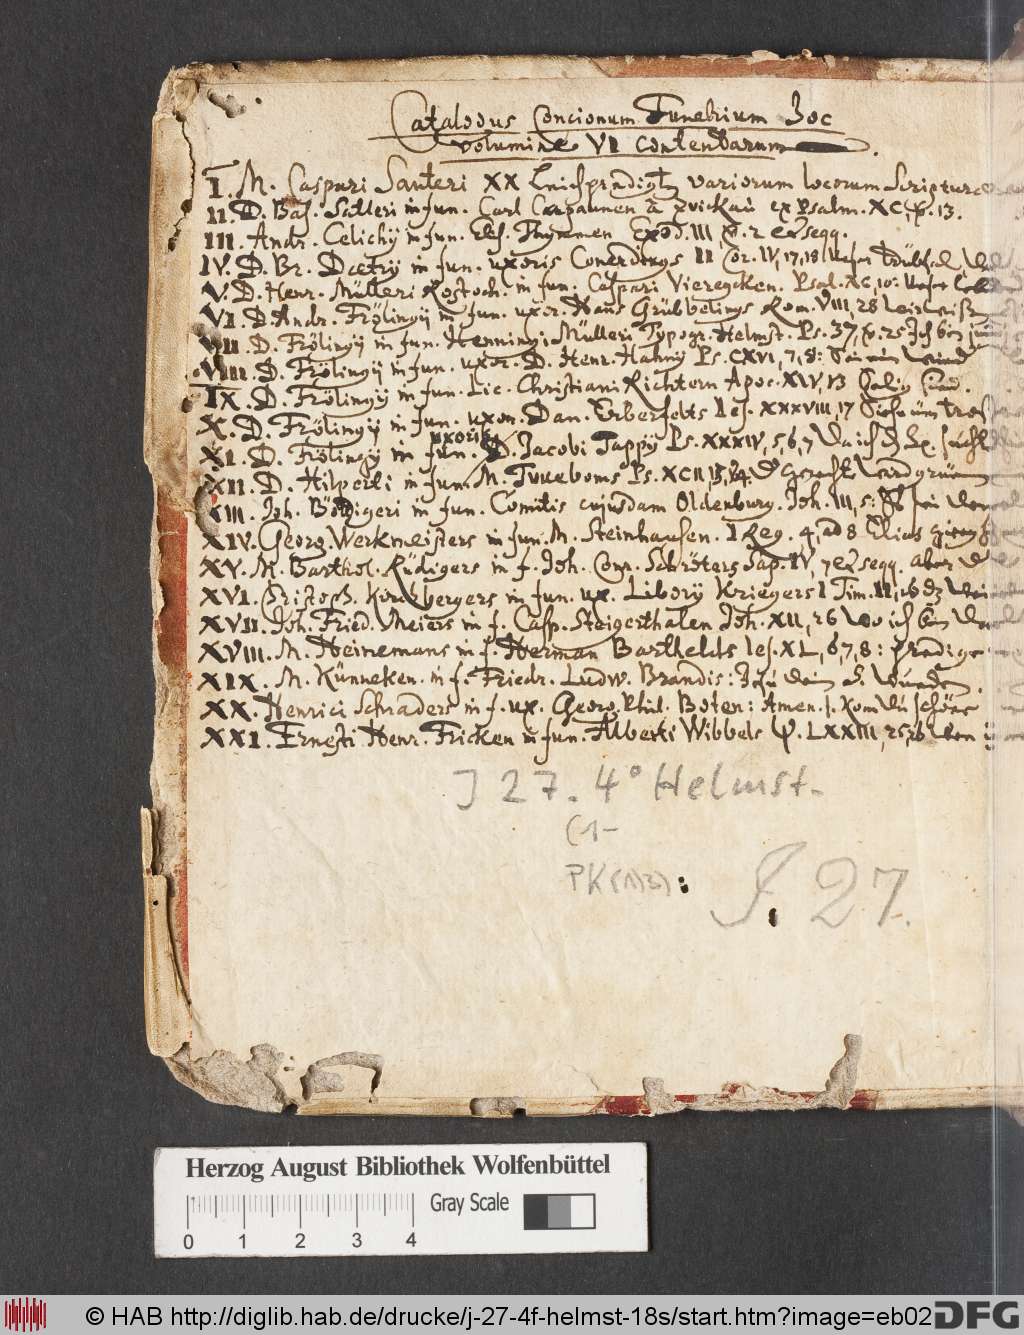 Catalogus Concionum Funebrium hoc
volumine VI contentarum
I. M. Caspari Sauteri XX Leichpredigt variorum locorum Scripturæ
II. D. Bas. Satleri in fun. Carl Capaunen à Zwickaù ex Psalm. XC, v. 13.
III. Andr. Celichij in fun. Elis. Thymmen Exod. III, v. 2 & seqq.
IV. D. Br. Dætrij in fun. uxoris Conerdings II Cor. IV, 17, 18 Unser Trübsal
V. D. Henr. Mülleri Rostoch. in fun. Caspari Vieregcken. Psal. XC, 10: Unser Leben
VI. D. Andr. Frölingij in fun. uxor. Hans Grübbelings Rom. VIII, 28
VII. D. Frölingij in fun. Henningi Mülleri Typogr. Helmst. Ps. 37, v. 25 Ich bin jung
VIII. D. Frölingij in fun. uxor. D. Henr. Hahny Ps. CXVI, 7, 8:
IX. D. Frölingij in fun. Lic. Christiani Richtern Apoc. XIV, 13 Selig sind.
X. D. Frölingij in fun. uxor. Dan. Erberfelts Ies. XXXVIII, 17 Siehe üm trost
XI. D. Frölingij in fun. uxoris D. Jacobi Tappij Ps. XXXIV, 5, 6, 7 Da ich
XII. D. Hilperti in fun. M. Tuneboms Ps. XCII, 13, 14.
XIII. Joh. Böttigeri in fun. Comitis cujusdam Oldenburg. Joh. III, 5:
XIV. Georg. Werkmeisters in fun. M. Steinhausen. I Reg. 4, ad 8 Elias gieng
XV. M. Barthol. Rüdigers in f. Joh. Conr. Schröters Sap. IV, 7 & seqq. aber
XVI. Christoph. Kirchbergers in fun. ux. Liborij Kriegers I Tim. II,
XVII. Joh. Fried. Meiers in f. Casp. Steigerthalen Joh. XII, 26 Wo ich bin
XVIII. M. Heinemans in f. Herman Barthelds Ies. XL, 6, 7, 8: Predige
XIX. M. Künneken. in f. Friedr. Ludw. Brandis:
XX. Henrici Schraders in f. ux. Georg. Phil. Boten: Amen. j. Kom dù schöne
XXI. Ernesti Henr. Fricken in fun. Alberti Wibbels Ψ. LXXIII, 25, 26 Wen
J 27. 4° Helmst.
(1-
PK(1)2):
J. 27.
Herzog August Bibliothek Wolfenbüttel
Gray Scale
0 1 2 3 4
© HAB http://diglib.hab.de/drucke/j-27-4f-helmst-18s/start.htm?image=eb02
DFG